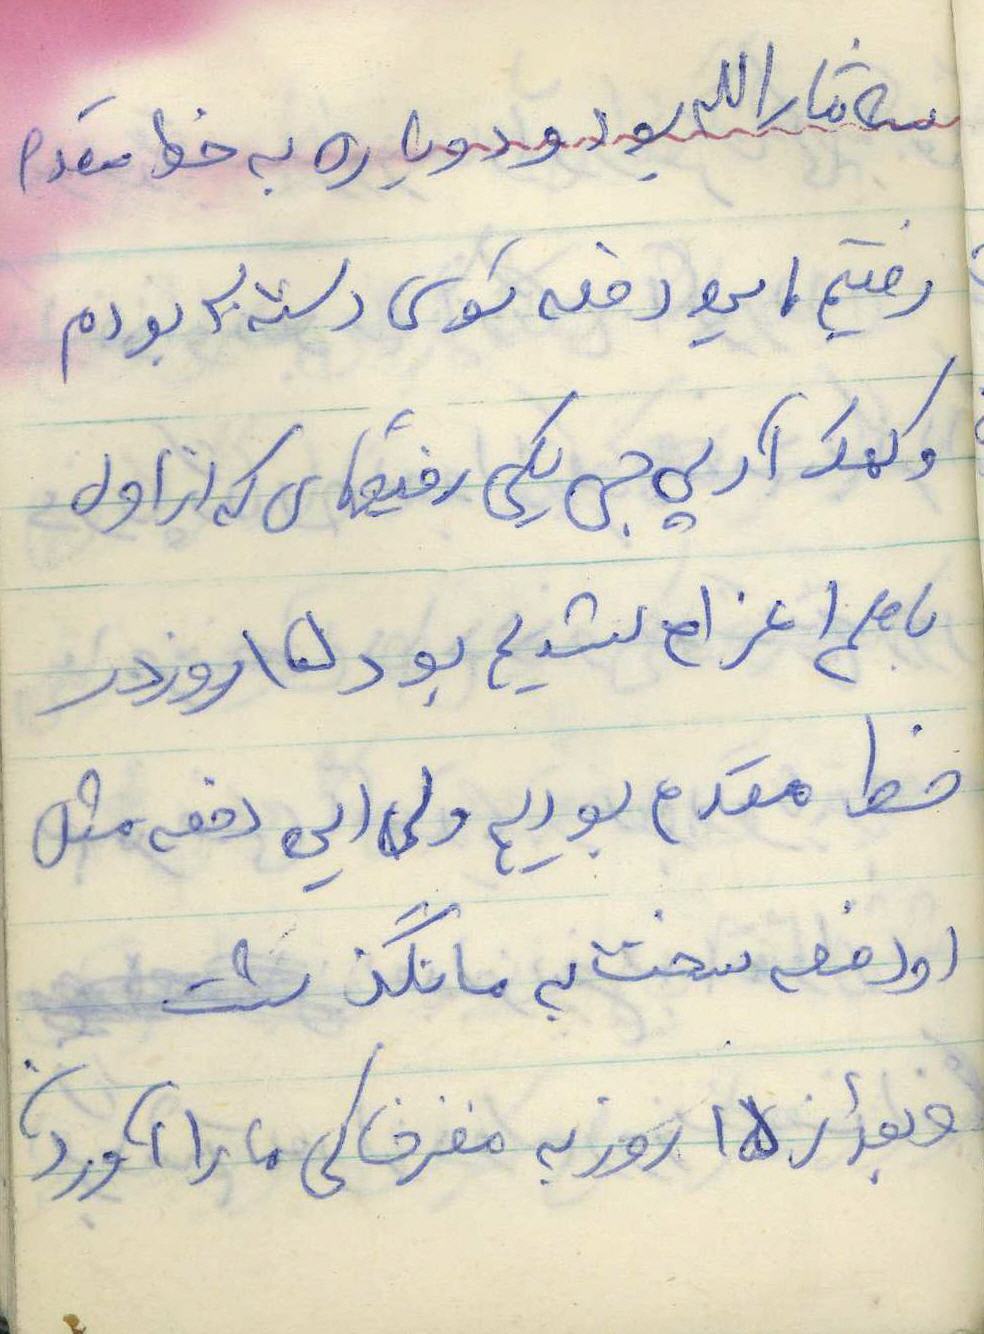 ثارالله بود و دوباره به خط مقدم
رفتیم این دفعه توی دسته ۲ بودم
و کمک آر پی جی یکی رفیقهای که از اول
باهم اعزام شدیم بود ۱۵ روز در
خط مقدم بودیم ولی این دفعه مثل
اول دفعه سخت به ما نگذشت
و بعد از ۱۵ روز به مقر خاکی ما را آوردن